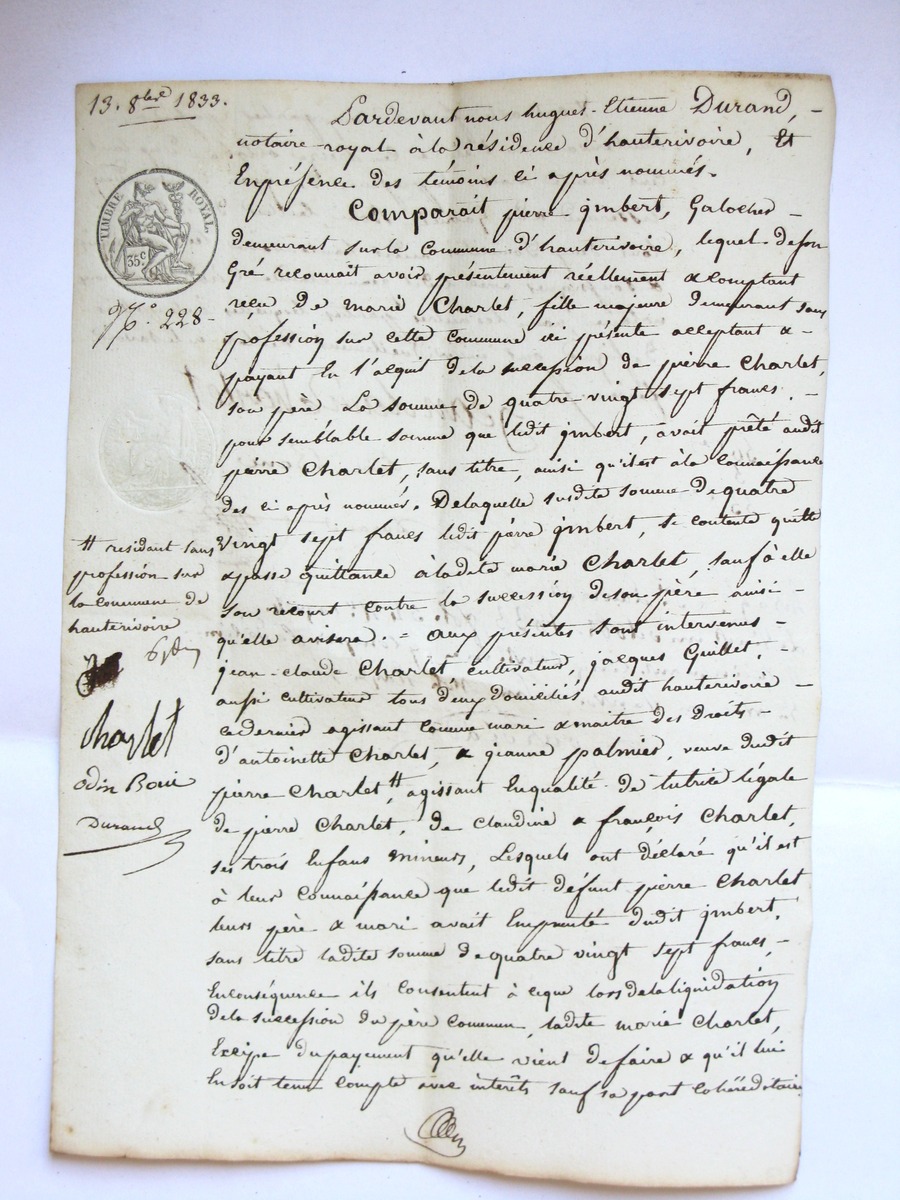 13. 8bre 1833.
TIMBRE ROYAL.
35 c
N.° 228
Pardevant nous hugues-Etienne Durand,
notaire royal à la résidence d'hauterivoire, Et
En présence des témoins ci après nommés.
Comparait pierre jmbert, Galocher
demeurant sur la Commune d'hauterivoire, lequel de son
Gré reconnait avoir présentement réellement & comptant
reçu de marie Charlet, fille majeure demeurant sans
profession sur cette commune ici présente acceptant &
payant En l'acquit de la succession de pierre Charlet,
son père La somme de quatre vingt sept francs.
pour semblable somme que ledit jmbert, avait prêté audit
pierre Charlet, sans titre, ainsi qu'il est à la Connaissance
des ci après nommés. De laquelle susdite somme de quatre
vingt sept francs ledit pierre jmbert, se contente quitte
& passe quittance à ladite marie Charlet, sauf à elle
son recourt contre la succession de son père ainsi
qu'elle avisera. = aux présentes sont intervenus
jean-claude Charlet, cultivateur, jacques Guillet,
aussi cultivateur tous deux domiciliés audit hauterivoire
ce dernier agissant comme mari & maitre des droits
d'antoinette Charlet, & jeanne palmier, veuve dudit
pierre Charlet #, agissant En qualité de tutrice légale
de pierre Charlet, de claudine & françois Charlet,
ses trois Enfans mineurs, Lesquels ont déclaré qu'il est
à leur Connaissance que ledit défunt pierre Charlet
leurs père & mari avait Emprunté dudit jmbert,
sans titre ladite somme de quatre vingt sept francs,
En conséquence ils consentent à ce que lors de la liquidation
de la succession du père Commun, ladite marie Charlet,
Excipe du payement qu'elle vient de faire & qu'il lui
En soit tenu compte avec intérêts sauf sa part Cohéréditaire
# residant sans
profession sur
la commune de
hauterivoire
Charlet
odin
Durand